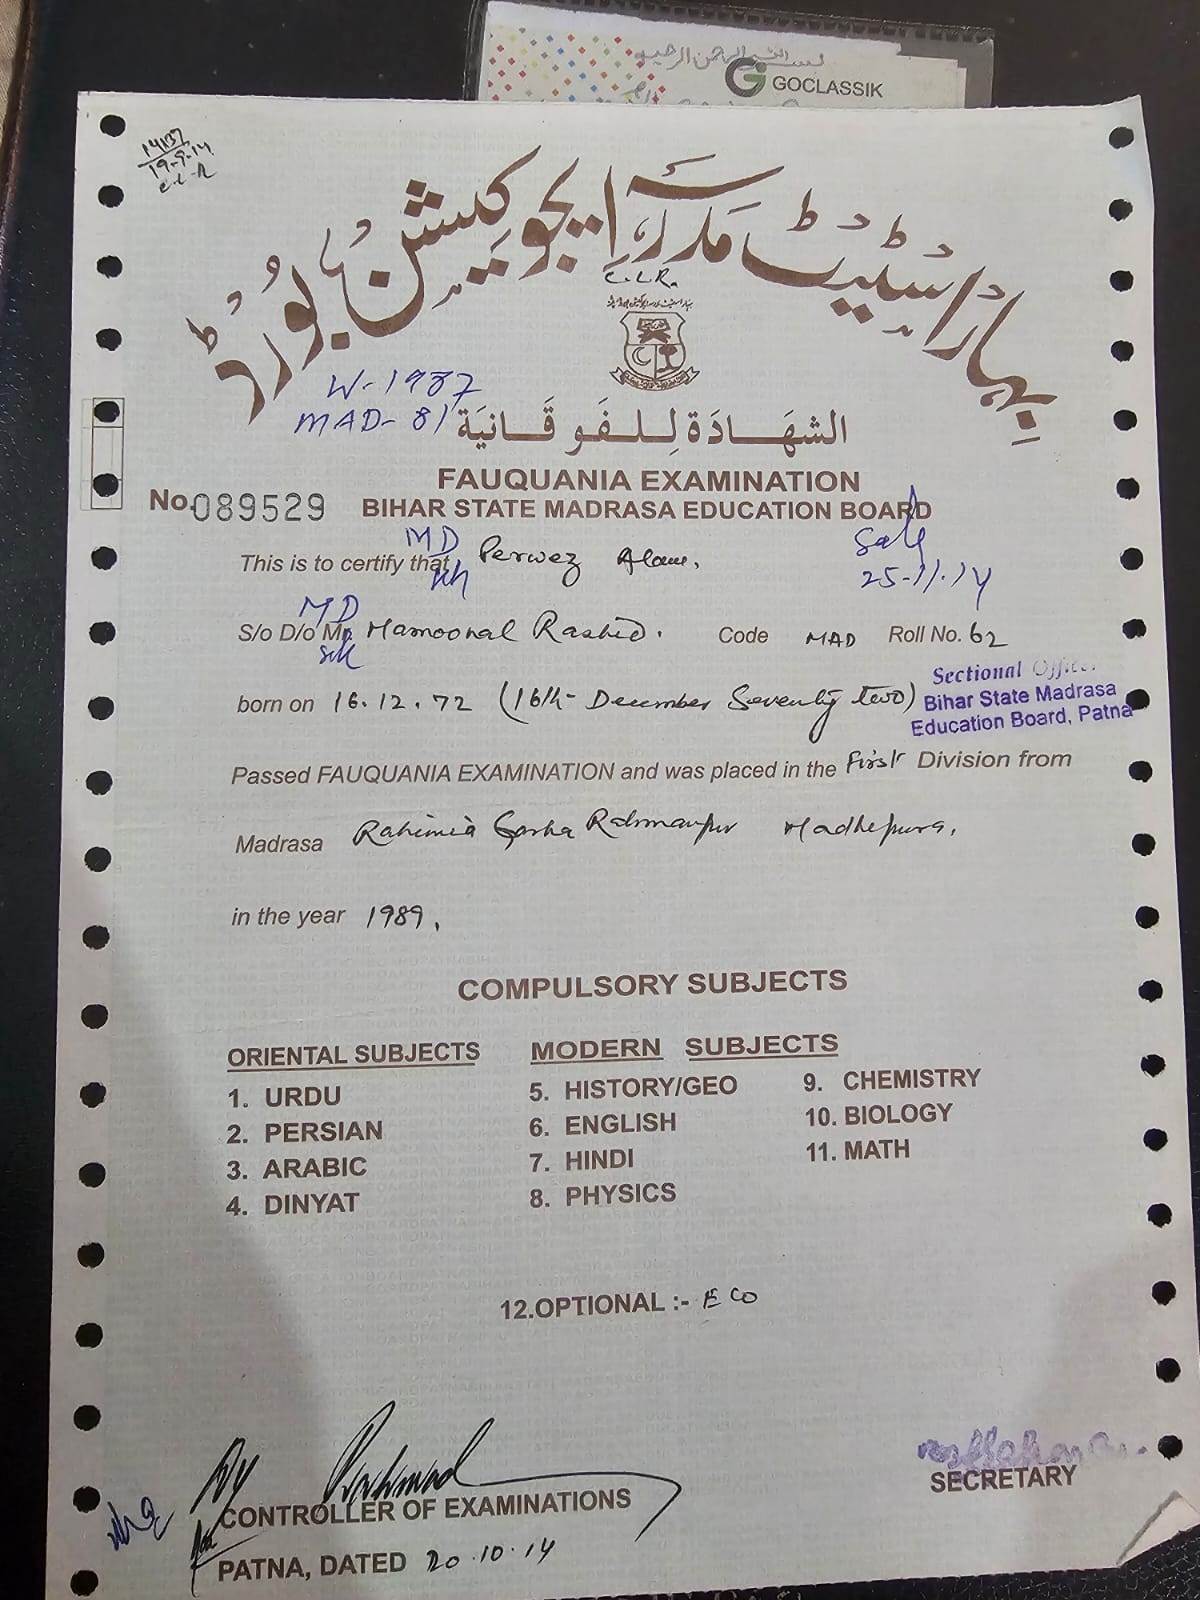 GOCLASSIK
14137
19-9-14
بہار اسٹیٹ مدرسہ ایجوکیشن بورڈ
C.L.R.
W-1987
MAD-81
الشهادة للفوقانية
FAUQUANIA EXAMINATION
No. 089529 BIHAR STATE MADRASA EDUCATION BOARD
This is to certify that MD Perwez Alam.
25-11-14
S/o D/o Mr. MD Mamoonal Rashid. Code MAD Roll No. 62
Sectional Officer
Bihar State Madrasa
Education Board, Patna
born on 16.12.72 (16th December Seventy two)
Passed FAUQUANIA EXAMINATION and was placed in the First Division from
Madrasa Rahimia Garha Rahmanpur Madhepura.
in the year 1989.
COMPULSORY SUBJECTS
ORIENTAL SUBJECTS MODERN SUBJECTS
1. URDU 5. HISTORY/GEO 9. CHEMISTRY
2. PERSIAN 6. ENGLISH 10. BIOLOGY
3. ARABIC 7. HINDI 11. MATH
4. DINYAT 8. PHYSICS
12.OPTIONAL :- ECO
CONTROLLER OF EXAMINATIONS SECRETARY
PATNA, DATED 20.10.14